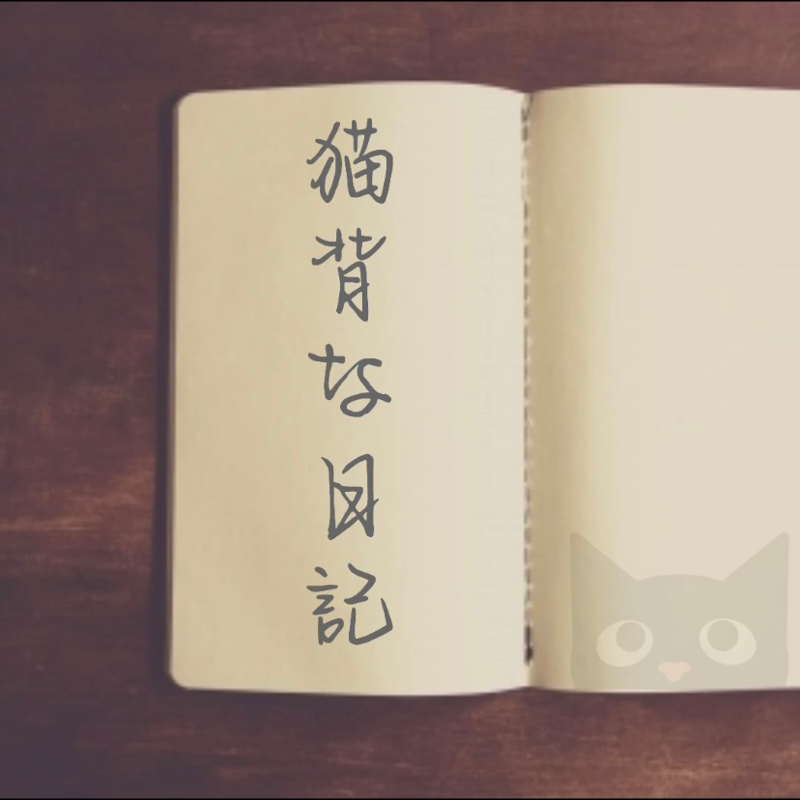 猫背な日記